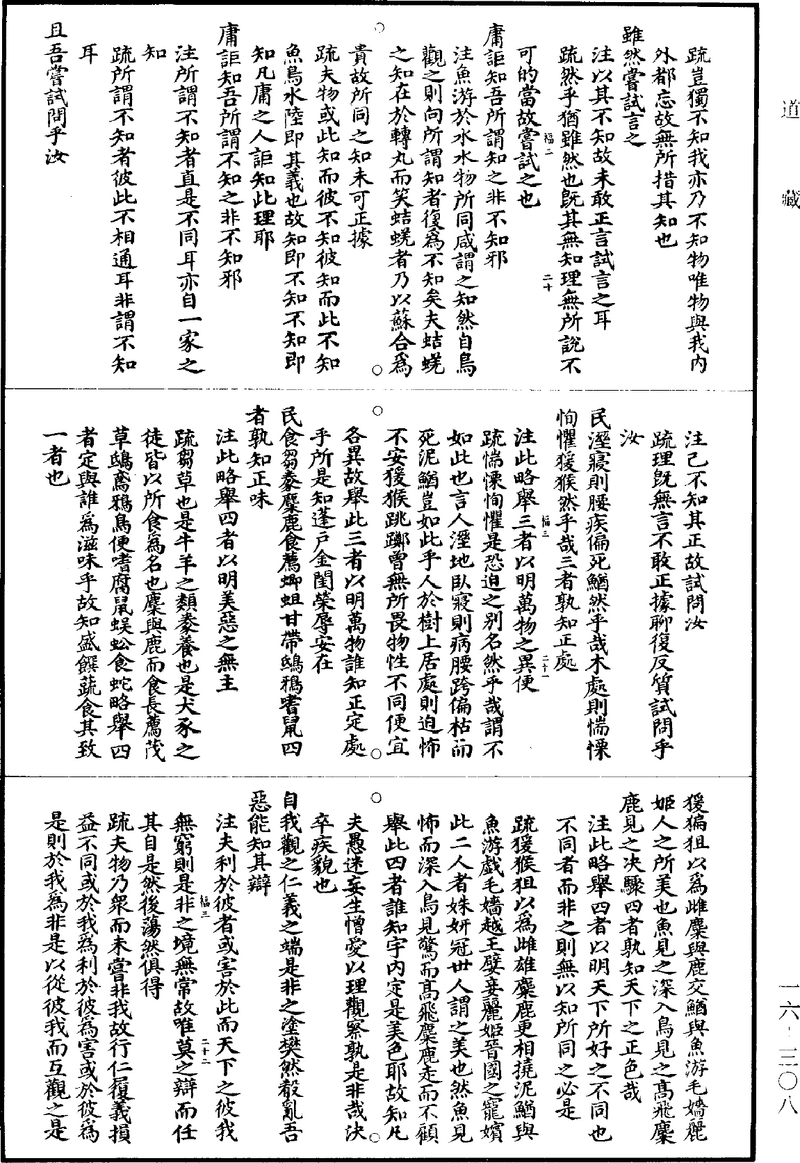 道藏
疏豈獨不知我亦乃不知物唯物與我內
外都忘故無所措其知也
雖然嘗試言之
注以其不知故未敢正言試言之耳
疏然乎猶雖然也既其無知理無所說不
可的當故嘗試之也
福二
二十
庸詎知吾所謂知之非不知邪
注魚游於水水物所同咸謂之知然自鳥
觀之則向所謂知者復為不知矣夫蛣蜣
之知在於轉丸而笑蛣蜣者乃以蘇合為
貴故所同之知未可正據
疏夫物或此知而彼不知彼知而此不知
魚鳥水陸即其義也故知即不知不知即
知凡庸之人詎知此理耶
庸詎知吾所謂不知之非不知邪
注所謂不知者直是不同耳亦自一家之
知
疏所謂不知者彼此不相通耳非謂不知
耳
且吾嘗試問乎汝
注己不知其正故試問汝
疏理既無言不敢正據聊復反質試問乎
汝
民溼寢則腰疾偏死鰌然乎哉木處則惴慄
恂懼猨猴然乎哉三者孰知正處
注此略舉三者以明萬物之異便
福三
二十一
疏惴慄恂懼是恐迫之別名然乎哉謂不
如此也言人溼地臥寢則病腰跨偏枯而
死泥鰌豈如此乎人於樹上居處則迫怖
不安猨猴跳躑曾無所畏物性不同便宜
各異故舉此三者以明萬物誰知正定處
乎所是知蓬戶金閨榮辱安在
民食芻豢麋鹿食薦蝍蛆甘帶鴟鴉嗜鼠四
者孰知正味
注此略舉四者以明美惡之無主
疏芻草也是牛羊之類豢養也是犬豕之
徒皆以所食為名也麋與鹿而食長薦茂
草鴟鳶鴉鳥便嗜腐鼠蜈蚣食蛇略舉四
者定與誰為滋味乎故知盛饌蔬食其致
一者也
猨猵狙以為雌麋與鹿交鰌與魚游毛嬙麗
姬人之所美也魚見之深入鳥見之高飛麋
鹿見之決驟四者孰知天下之正色哉
注此略舉四者以明天下所好之不同也
不同者而非之則無以知所同之必是
疏猨猴狙以為雌雄麋鹿更相撓泥鰌與
魚游戲毛嬙越王嬖妾麗姬晉國之寵嬪
此二人者姝妍冠世人謂之美也然魚見
怖而深入鳥見驚而高飛麋鹿走而不顧
舉此四者誰知宇內定是美色耶故知凡
夫愚迷妄生憎愛以理觀察孰是非哉決
卒疾貌也
自我觀之仁義之端是非之塗樊然殽亂吾
惡能知其辯
注夫利於彼者或害於此而天下之彼我
無窮則是非之境無常故唯莫之辯而任
福三
二十二
其自是然後蕩然俱得
疏夫物乃眾而未嘗非我故行仁履義損
益不同或於我為利於彼為害或於彼為
是則於我為非是以從彼我而互觀之是
一六-三〇八